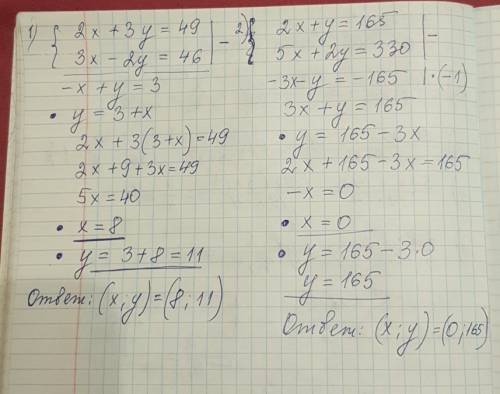 1) { 2x + 3y = 49 | -
3x - 2y = 46
-x + y = 3
• y = 3 + x
2x + 3(3+x) = 49
2x + 9 + 3x = 49
5x = 40
• x = 8
• y = 3 + 8 = 11
Ответ: (x; y) = (8; 11)
2) { 2x + y = 165 | -
5x + 2y = 330
-3x - y = -165 | · (-1)
3x + y = 165
• y = 165 - 3x
2x + 165 - 3x = 165
-x = 0
• x = 0
• y = 165 - 3·0
y = 165
Ответ: (x; y) = (0; 165)